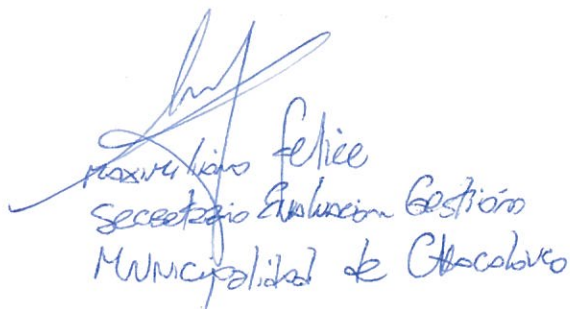 Maximiliano Felice
Secretario Evaluacion Gestión
Municipalidad de Chacabuco